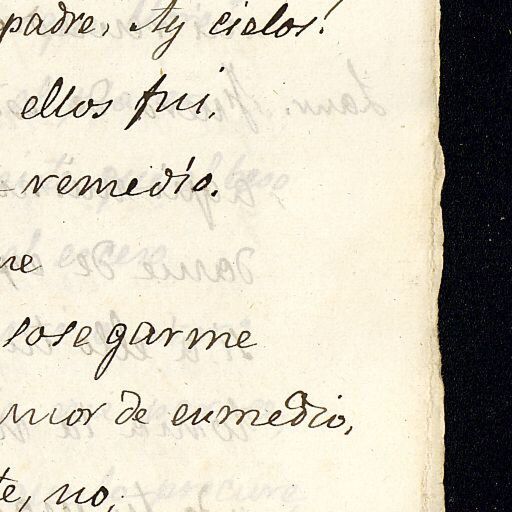 padre, Ay cielos!
ellos fui,
remedio.
sosegarme
de enmedio,
te, no,